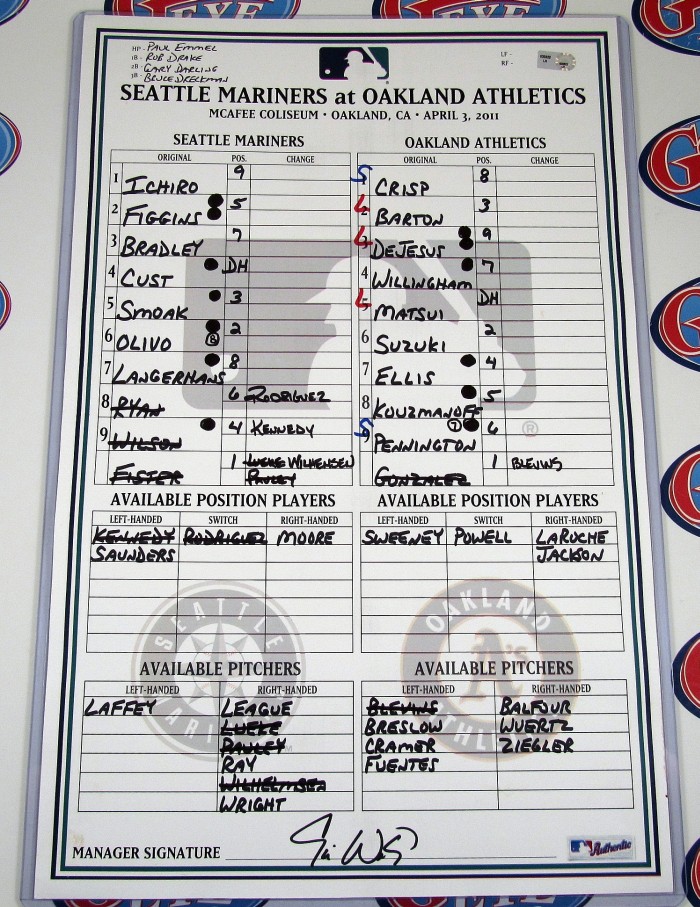 HP - PAUL EMMEL
1B - ROB DRAKE
2B - GARY DARLING
3B - BRUCE DRECKMAN
LF -
RF -
SEATTLE MARINERS at OAKLAND ATHLETICS
MCAFEE COLISEUM • OAKLAND, CA • APRIL 3, 2011
SEATTLE MARINERS
ORIGINAL POS. CHANGE
1 ICHIRO 9
2 FIGGINS 5
3 BRADLEY 7
4 CUST DH
5 SMOAK 3
6 OLIVO 8 2
7 LANGERHANS 8
8 RYAN 6 RODRIGUEZ
9 WILSON 4 KENNEDY
FISTER 1 LUEKE WILHEMSEN
PAULEY
OAKLAND ATHLETICS
ORIGINAL POS. CHANGE
S 1 CRISP 8
L 2 BARTON 3
L 3 DEJESUS 9
4 WILLINGHAM 7
L 5 MATSUI DH
6 SUZUKI 2
7 ELLIS 4
8 KOUZMANOFF 5
S 9 PENNINGTON 7 6
GONZALEZ 1 BLEVINS
AVAILABLE POSITION PLAYERS
LEFT-HANDED SWITCH RIGHT-HANDED
KENNEDY RODRIGUEZ MOORE
SAUNDERS
AVAILABLE POSITION PLAYERS
LEFT-HANDED SWITCH RIGHT-HANDED
SWEENEY POWELL LAROCHE
JACKSON
AVAILABLE PITCHERS
LEFT-HANDED RIGHT-HANDED
LAFFEY LEAGUE
LUEKE
PAULEY
RAY
WILHELMSEN
WRIGHT
AVAILABLE PITCHERS
LEFT-HANDED RIGHT-HANDED
BLEVINS BALFOUR
BRESLOW WUERTZ
CRAMER ZIEGLER
FUENTES
SEATTLE
OAKLAND
A's
MANAGER SIGNATURE
Authentic